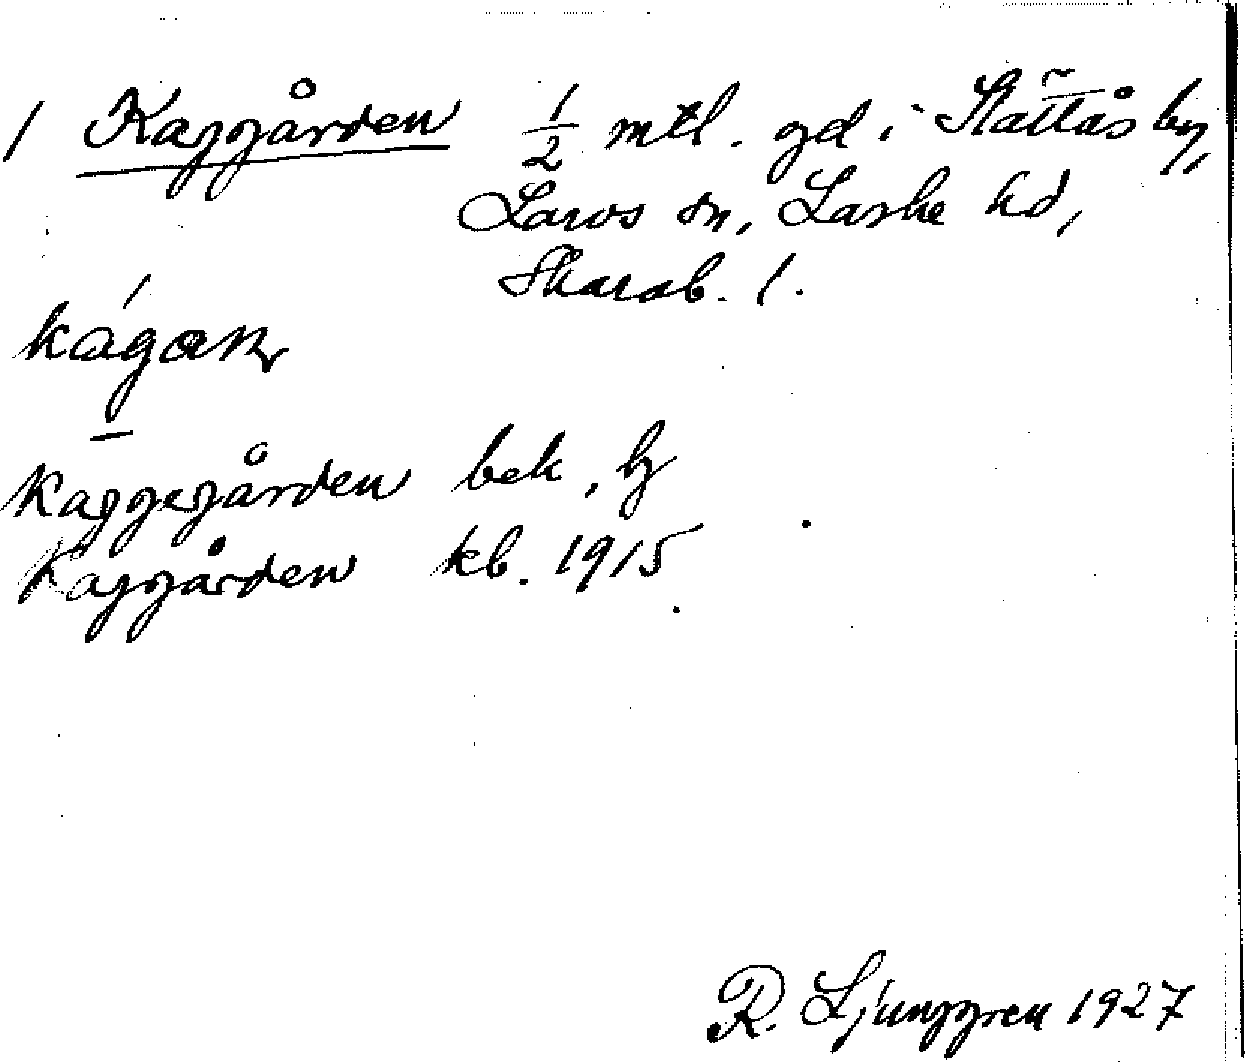 1 Kaggården ½ mtl. gd i Slättås by,
Larvs sn, Laske hd,
Skarab. l.
kágan
Kaggegården bek, by
Kaggården kb. 1915
R. Ljunggren 1927